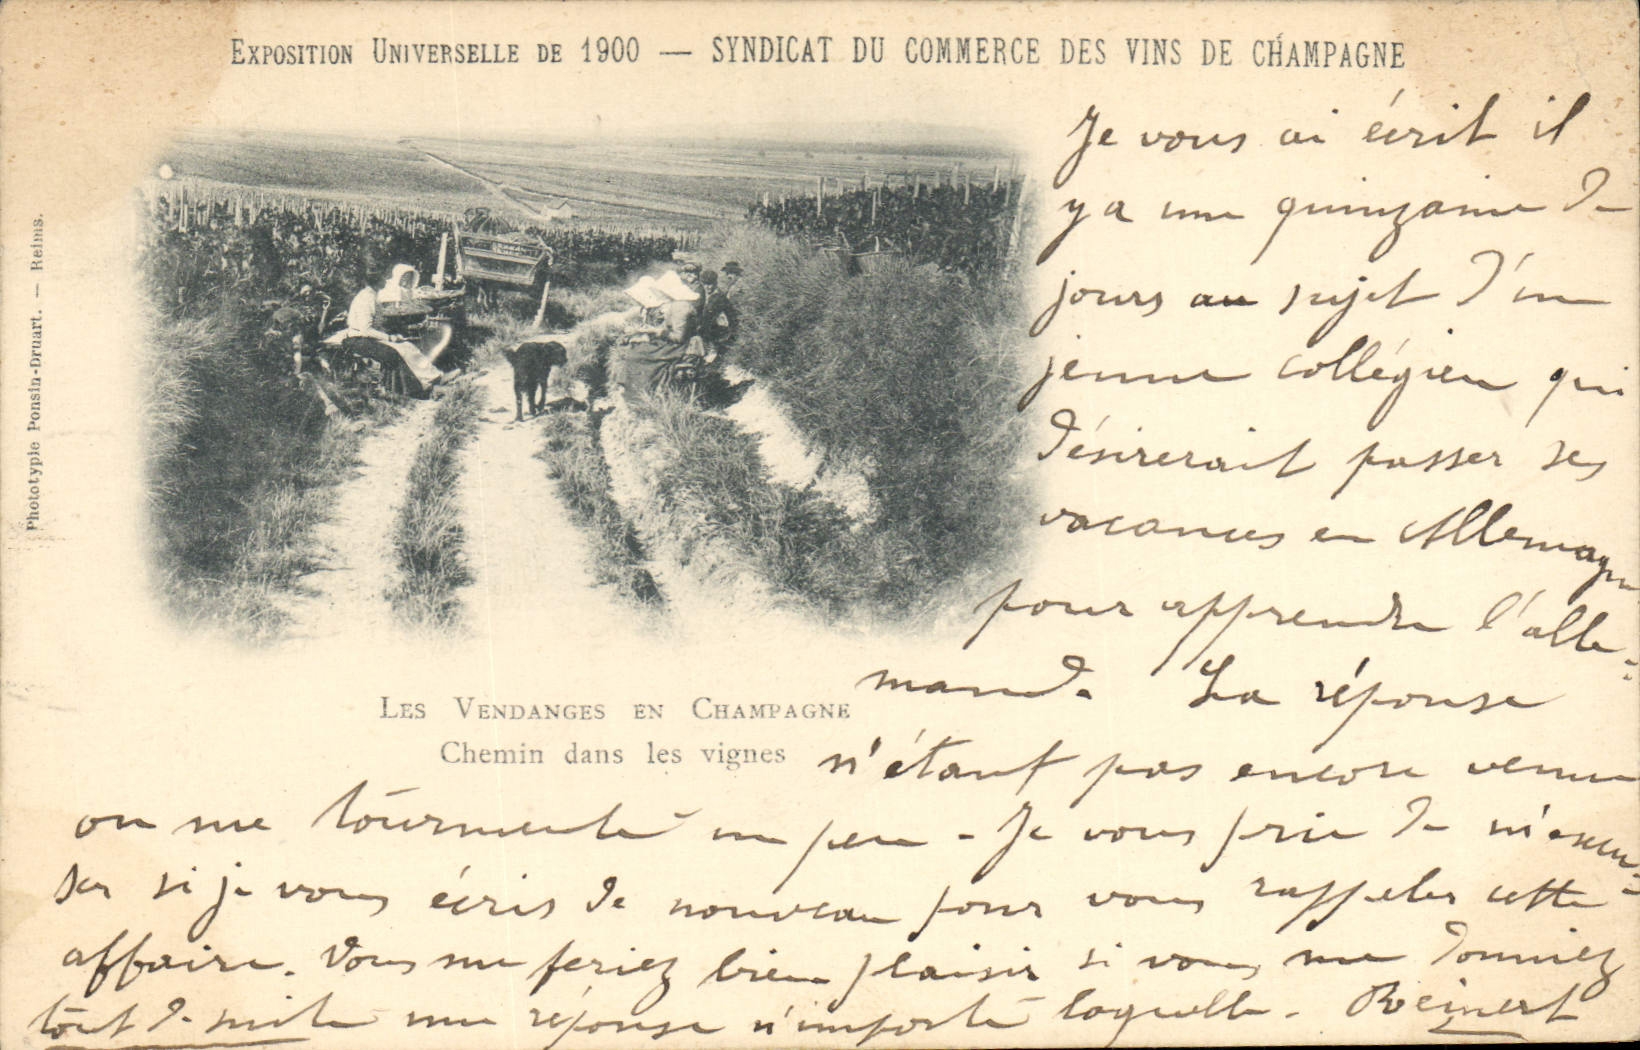 EXPOSITION UNIVERSELLE DE 1900 — SYNDICAT DU COMMERCE DES VINS DE CHAMPAGNE
Phototypie Ponsin-Druart. — Reims.
Je vous ai écrit il
y a une quinzaine de
jours au sujet d'un
jeune collégien qui
désirerait passer ses
vacances en Allemagne
pour apprendre l'alle-
mand. La réponse
LES VENDANGES EN CHAMPAGNE
Chemin dans les vignes
n'étant pas encore venue
on me tourmente un peu - Je vous prie de m'excu-
ser si je vous écris de nouveau pour vous rappeler cette
affaire. Vous me feriez bien plaisir si vous me donniez
tout de suite une réponse n'importe laquelle. Reinert